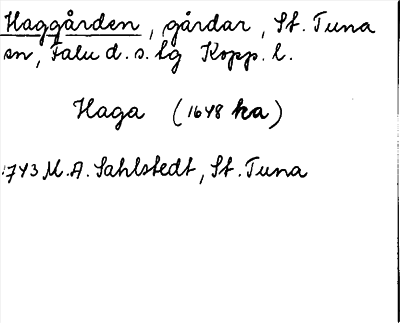 Haggården, gårdar, St. Tuna
sn, Falu d. s. lg Kopp. l.
Haga (1648 ka)
1743 M. A. Sahlstedt, St. Tuna